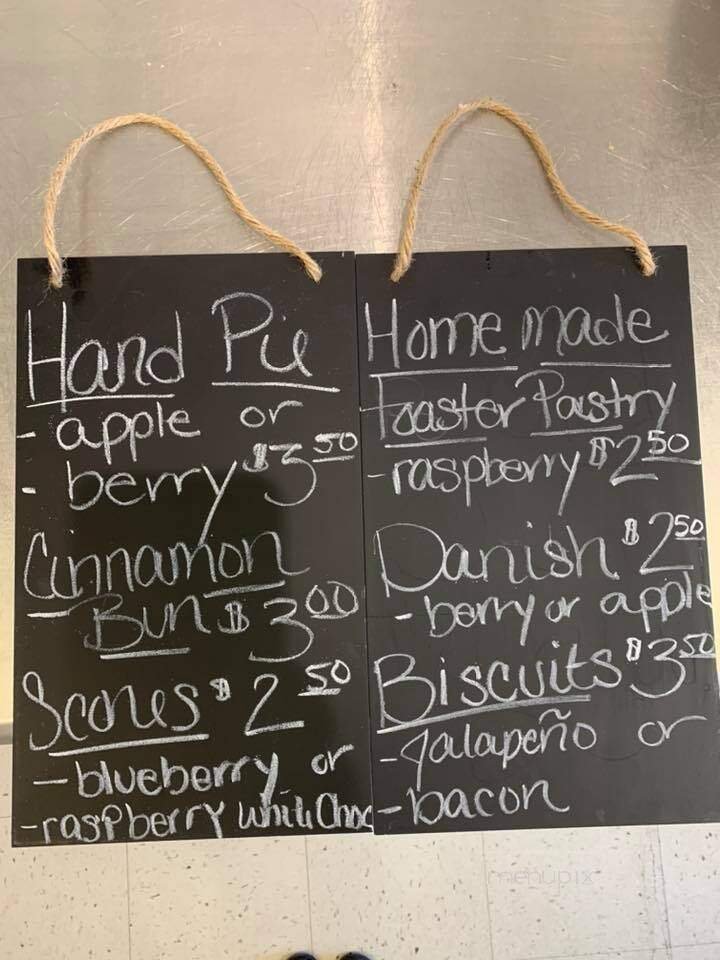 Hand Pie
- apple or
- berry $3 50
Cinnamon
Bun $3 00
Scones $2 50
- blueberry or
- raspberry white Choc
Home made
Toaster Pastry
- raspberry $2 50
Danish $2 50
- berry or apple
Biscuits $3 50
- Jalapeño or
- bacon
menupix